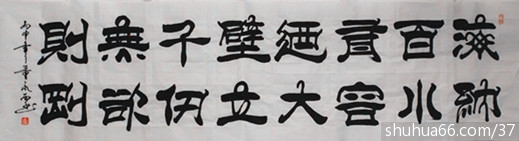 海納
百川
有容
迺大
壁立
千仞
無欲
則剛
丙申年
shuhua66.com/37